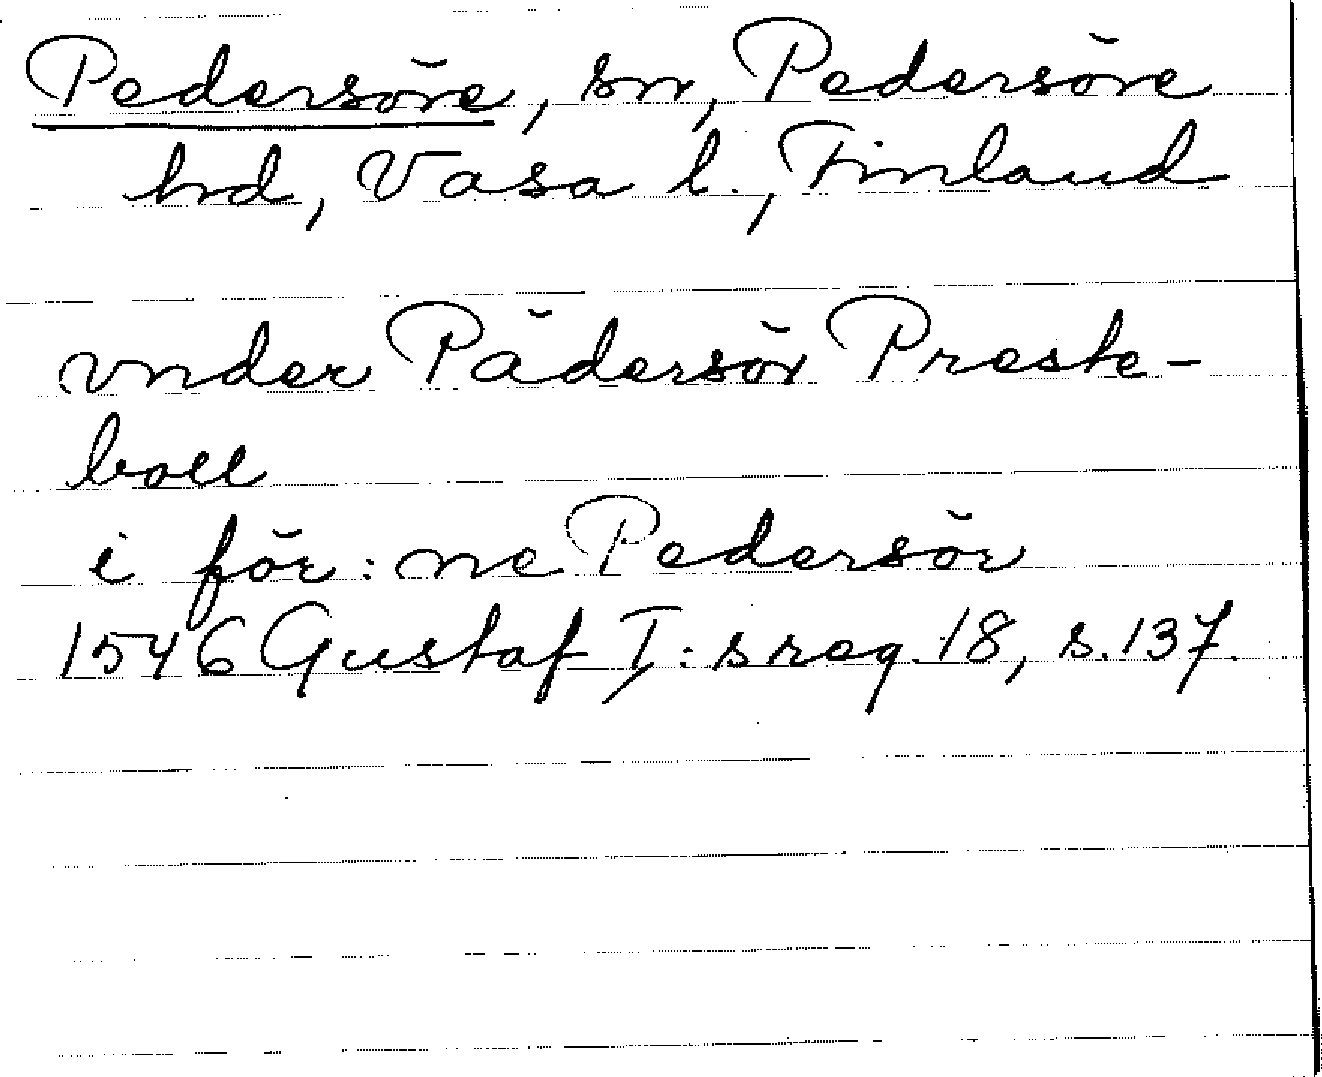 Pedersöre, sn, Pedersöre
hd, Vasa l., Finland
vnder Pädersör Preste-
boll
i för: ne Pedersör
1546 Gustaf I: s reg. 18, s. 137.